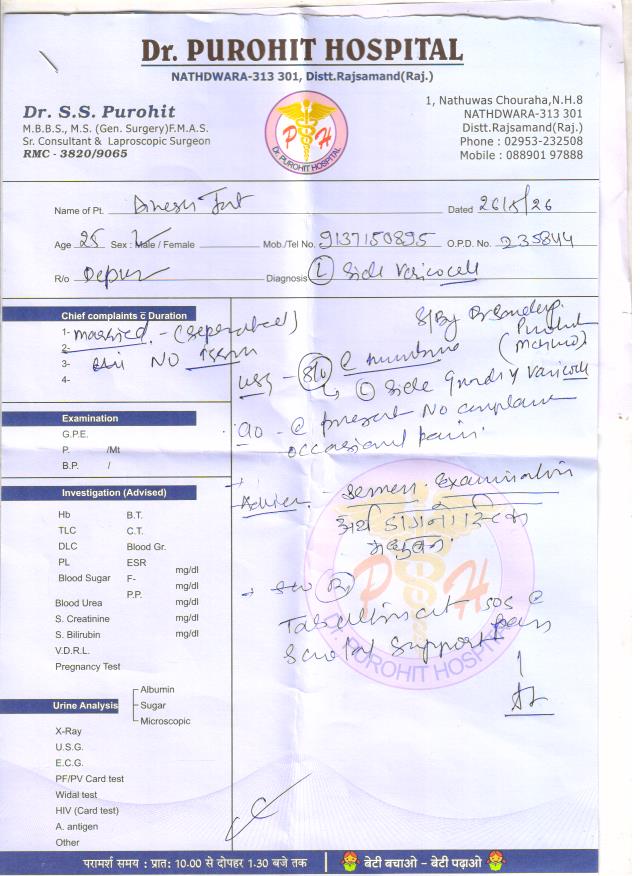 Dr. PUROHIT HOSPITAL
NATHDWARA-313 301, Distt.Rajsamand(Raj.)
Dr. S.S. Purohit
M.B.B.S., M.S. (Gen. Surgery)F.M.A.S.
Sr. Consultant & Laproscopic Surgeon
RMC - 3820/9065
P H
Dr. PUROHIT HOSPITAL
1, Nathuwas Chouraha,N.H.8
NATHDWARA-313 301
Distt.Rajsamand(Raj.)
Phone : 02953-232508
Mobile : 088901 97888
Name of Pt. Dinesh Dated 26/5/26
Age 25 Sex : Male / Female Mob./Tel No. 9137150895 O.P.D. No. 235844
R/o Depur Diagnosis (L) Side Varicocell
Chief complaints c̄ Duration
1- married - (seperated)
2-
3- NO issue
4-
S/By Dr Sandeep
Purohit
USG -
(L) Side Grade V Varicocele
c/o - present No complain
occasional pain
Examination
G.P.E.
P. /Mt
B.P. /
Advice - Semen Examination
Investigation (Advised)
Hb B.T.
TLC C.T.
DLC Blood Gr.
PL ESR
Blood Sugar F- mg/dl
P.P. mg/dl
Blood Urea mg/dl
S. Creatinine mg/dl
S. Bilirubin mg/dl
V.D.R.L.
Pregnancy Test
Rx
SOS
Scrotal Support
P H
Dr. PUROHIT HOSPITAL
Urine Analysis
Albumin
Sugar
Microscopic
X-Ray
U.S.G.
E.C.G.
PF/PV Card test
Widal test
HIV (Card test)
A. antigen
Other
परामर्श समय : प्रात: 10.00 से दोपहर 1.30 बजे तक
बेटी बचाओ – बेटी पढ़ाओ